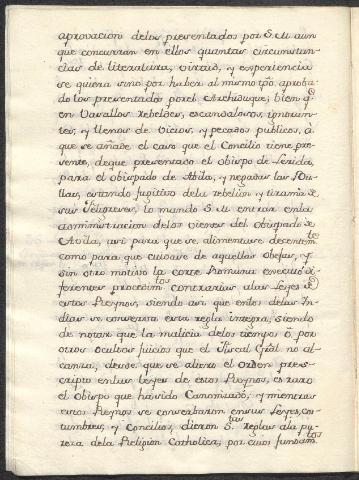 aprovacion delos presentados por S. M. aun
que concurran en ellos quantas circunstan-
cias de literatura, virtud, y experiencia
se quiera sino por haber al mismo tpõ. aproba
do los presentados porel Archiduque; bien q.^e
en Vasallos rebeldes, escandalosos, ignoran-
tes, y llenos de vicios, y pecados publicos, à
que se añade el caso que el Concilio tiene pre-
sente, deque presentado el obispo de Lerida,
para el obispado de Abila, y negadas las Bu-
llas, estando fugitivo dela rebelion, y tirania de
sus feligreses, lo mando S. M. entrar enla
administracion delos vienes del obispado de
Avila, asi para que se alimentase decentem.^te
como para que cuidase de aquellas obejas, y
sin otro motivo la corte Romana executó di-
ferentes procedim.^tos contrarias alas Leyes de
estos Reynos, siendo asi que enlos delas In-
dias se conserva esta regla integra, siendo
de notar que la malicia delos tiempos ô por
otros ocultos juicios que el Fiscal Gral no al-
canza, desde que se altero el orden pres-
cripto enlas leyes de estos Reynos, es raro
el obispo que há sido Canonizado, y mientras
estos Reynos se conserbaron ensus Leyes, cos-
tumbres, y Concilios, dieron S.^tas reglas ala pu-
reza dela Religion Catholica, por cuios fundam.^tos